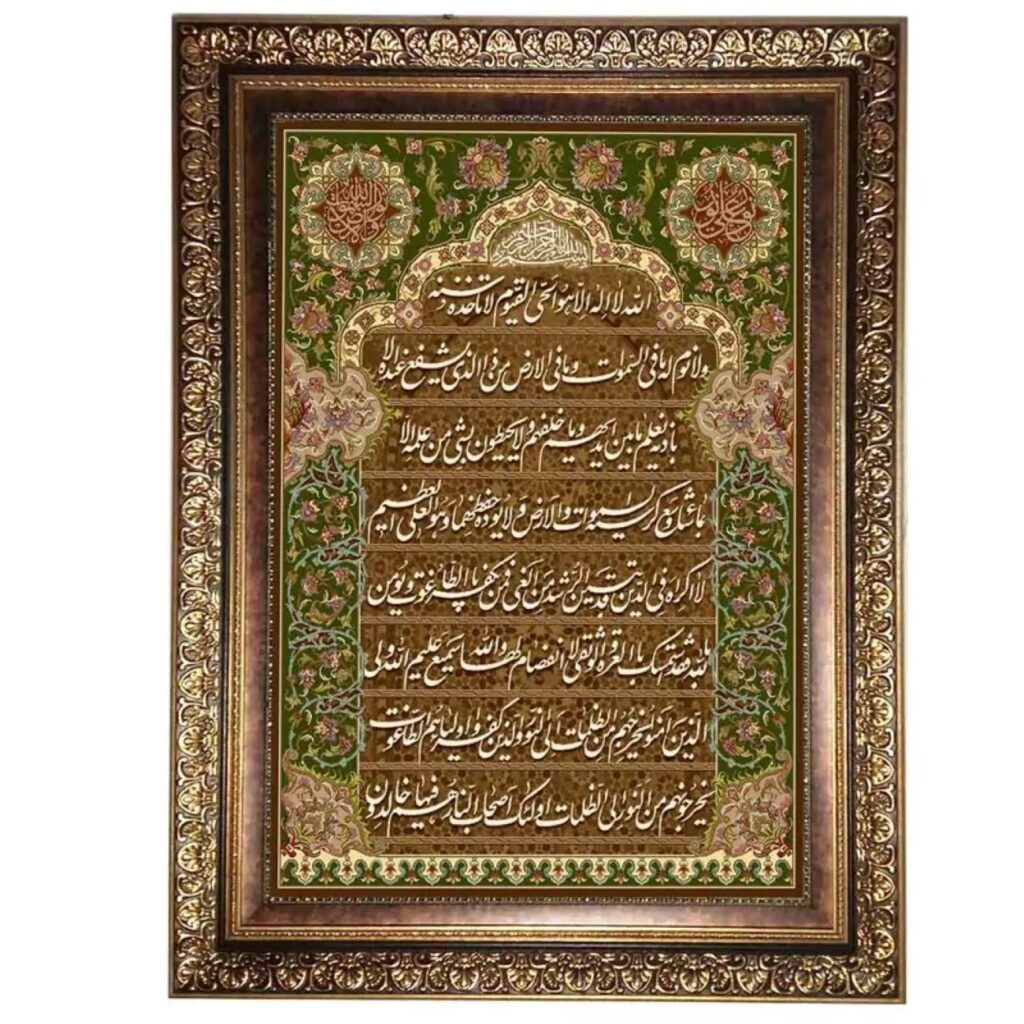 نور علی نور
الله نور السموات والارض
بسم الله الرحمن الرحیم
الله لا اله الا هو الحی القیوم لا تاخذه سنة
ولا نوم له ما فی السموات و ما فی الارض من ذا الذی یشفع عنده الا
باذنه یعلم ما بین ایدیهم و ما خلفهم ولا یحیطون بشی من علمه الا
بما شاء وسع کرسیه السموات والارض ولا یوده حفظهما وهو العلی العظیم
لا اکراه فی الدین قد تبین الرشد من الغی فمن یکفر بالطاغوت و یومن
بالله فقد استمسک بالعروة الوثقی لا انفصام لها والله سمیع علیم الله ولی
الذین امنوا یخرجهم من الظلمات الی النور والذین کفروا اولیاهم الطاغوت
یخرجونهم من النور الی الظلمات اولئک اصحاب النار هم فیها خالدون